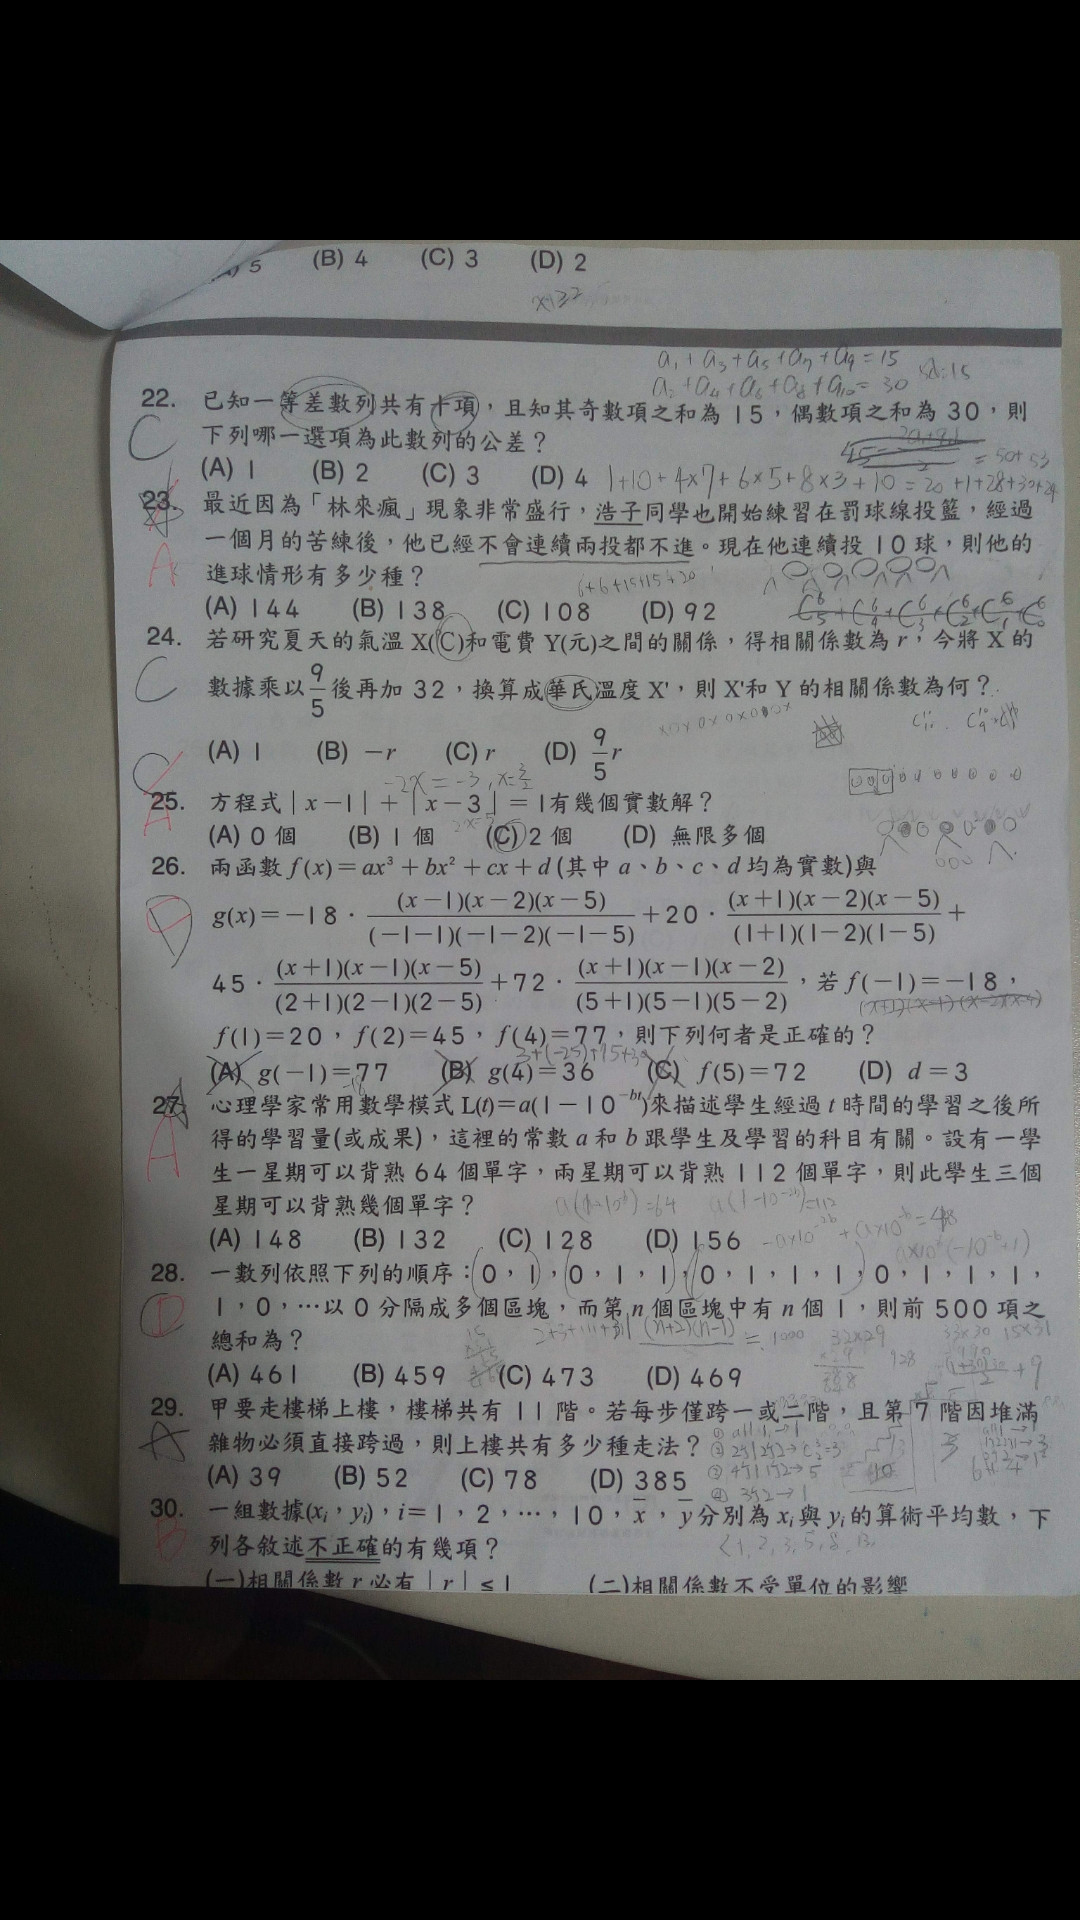 5 (B) 4 (C) 3 (D) 2
a₁+a₃+a₅+a₇+a₉=15
a₂+a₄+a₆+a₈+a₁₀=30 5d=15
22. 已知一等差數列共有十項，且知其奇數項之和為15，偶數項之和為30，則
C 下列哪一選項為此數列的公差？
(A) 1 (B) 2 (C) 3 (D) 4 1+10+4×7+6×5+8×3+10=20+1+28+30+24
23. 最近因為「林來瘋」現象非常盛行，浩子同學也開始練習在罰球線投籃，經過
一個月的苦練後，他已經不會連續兩投都不進。現在他連續投10球，則他的
A 進球情形有多少種？ 6+6+15+15+20
(A) 144 (B) 138 (C) 108 (D) 92
24. 若研究夏天的氣溫 X(℃)和電費 Y(元)之間的關係，得相關係數為 r，今將 X 的
C 數據乘以 9/5 後再加 32，換算成華氏溫度 X'，則 X'和 Y 的相關係數為何？
(A) 1 (B) −r (C) r (D) 9/5 r
-2x=-3, x=3/2
25. 方程式 | x−1 | + | x−3 | = 1有幾個實數解？
A (A) 0 個 (B) 1 個 (C) 2 個 (D) 無限多個
26. 兩函數 f(x)=ax³+bx²+cx+d (其中 a、b、c、d 均為實數)與
D g(x)=−18·(x−1)(x−2)(x−5)/(−1−1)(−1−2)(−1−5)+20·(x+1)(x−2)(x−5)/(1+1)(1−2)(1−5)+
45·(x+1)(x−1)(x−5)/(2+1)(2−1)(2−5)+72·(x+1)(x−1)(x−2)/(5+1)(5−1)(5−2)，若 f(−1)=−18，
f(1)=20，f(2)=45，f(4)=77，則下列何者是正確的？
(A) g(−1)=77 (B) g(4)=36 (C) f(5)=72 (D) d=3
27. 心理學家常用數學模式 L(t)=a(1−10⁻ᵇᵗ)來描述學生經過 t 時間的學習之後所
A 得的學習量(或成果)，這裡的常數 a 和 b 跟學生及學習的科目有關。設有一學
生一星期可以背熟 64 個單字，兩星期可以背熟 112 個單字，則此學生三個
星期可以背熟幾個單字？
(A) 148 (B) 132 (C) 128 (D) 156
28. 一數列依照下列的順序：0，1，0，1，1，0，1，1，1，0，1，1，1，
D 1，0，…以 0 分隔成多個區塊，而第 n 個區塊中有 n 個 1，則前 500 項之
總和為？
(A) 461 (B) 459 (C) 473 (D) 469
29. 甲要走樓梯上樓，樓梯共有 11 階。若每步僅跨一或二階，且第 7 階因堆滿
A 雜物必須直接跨過，則上樓共有多少種走法？
(A) 39 (B) 52 (C) 78 (D) 385
30. 一組數據(xᵢ，yᵢ)，i=1，2，…，10，x̄，ȳ分別為 xᵢ與 yᵢ的算術平均數，下
B 列各敘述不正確的有幾項？
(一)相關係數 r 必有 | r | ≤ 1 (二)相關係數不受單位的影響